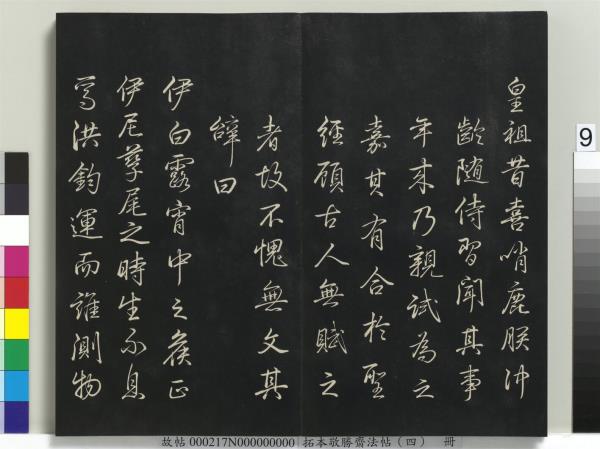 皇祖昔喜哨鹿朕沖
齡隨侍習聞其事
年來乃親試為之
嘉其有合於聖
經顧古人無賦之
者故不愧無文其
辭曰
伊白露宵中之候正
伊尼孳尾之時生不息
寫洪鈞運而誰測物
9
故帖000217N000000000 拓本敬勝齋法帖（四） 冊